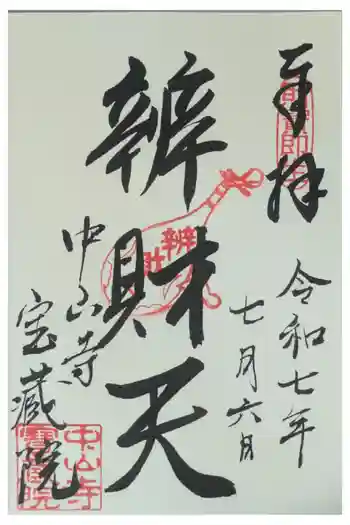 奉拝
令和七年
七月六日
辨財天
中山寺
宝蔵院
辨
中山寺
寳蔵院